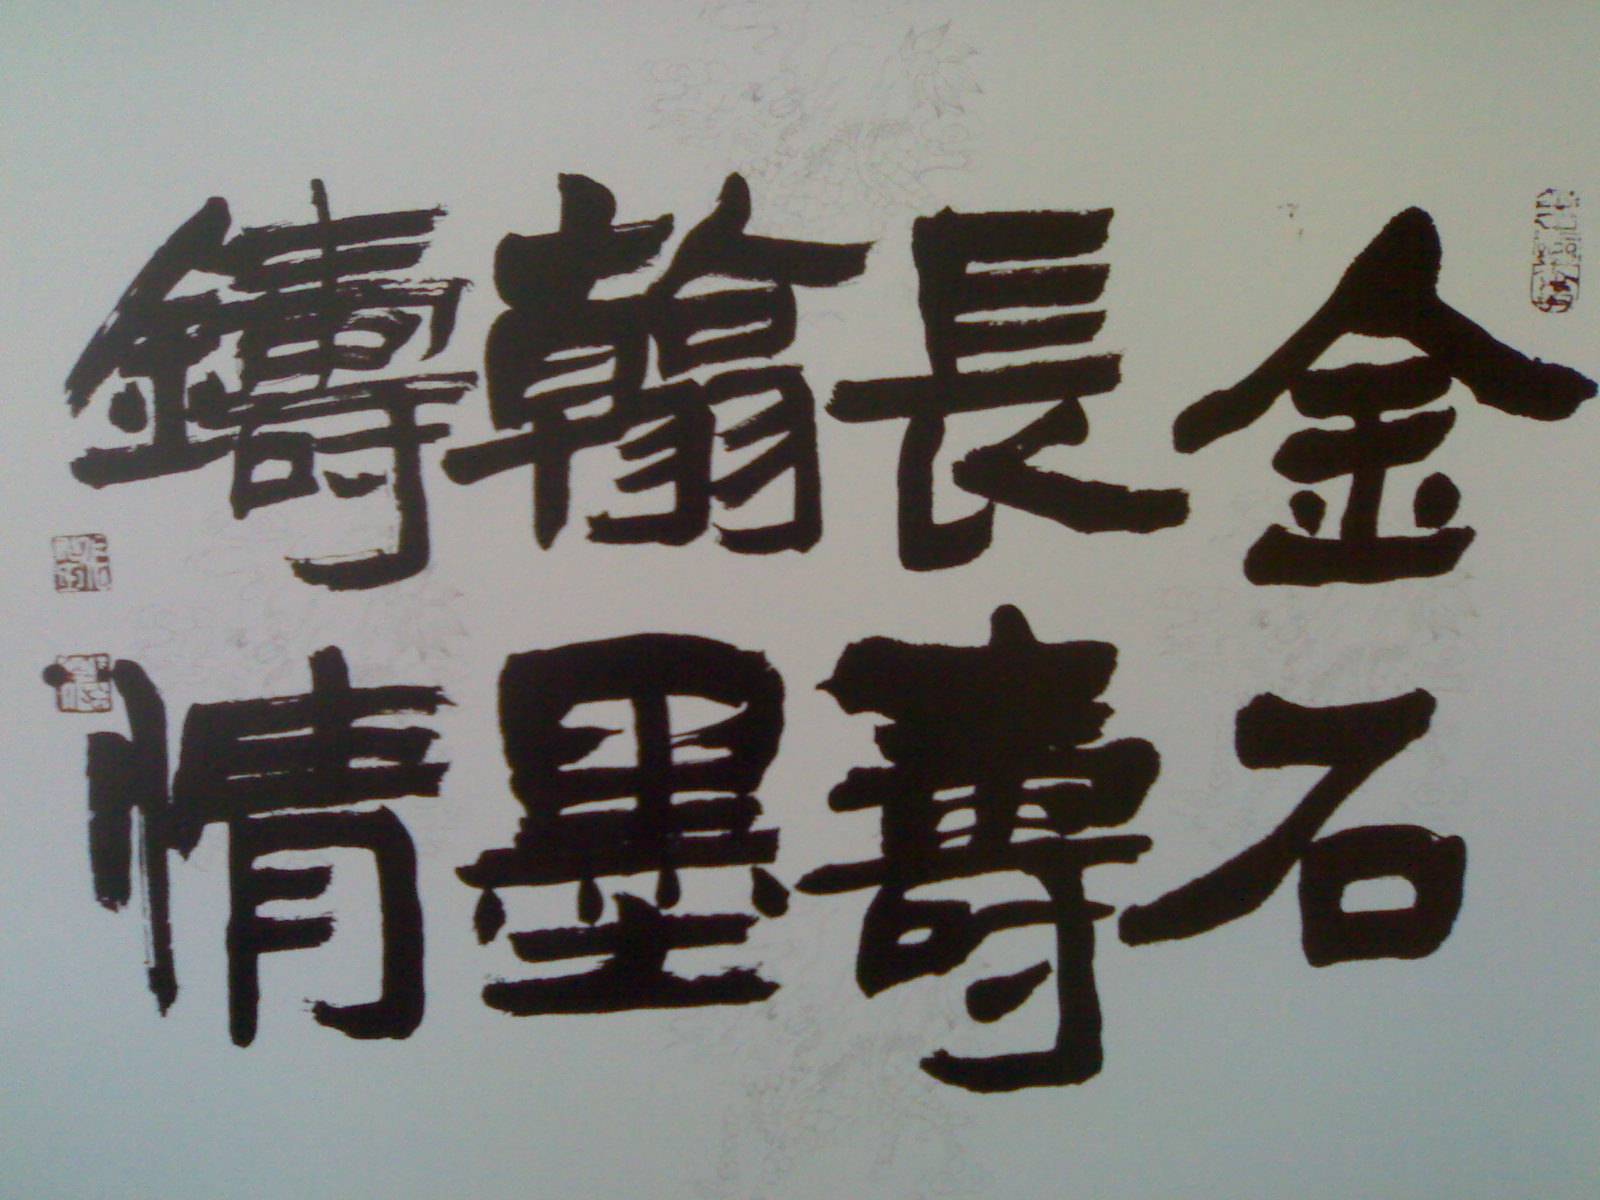 金石
長壽
翰墨
鑄情